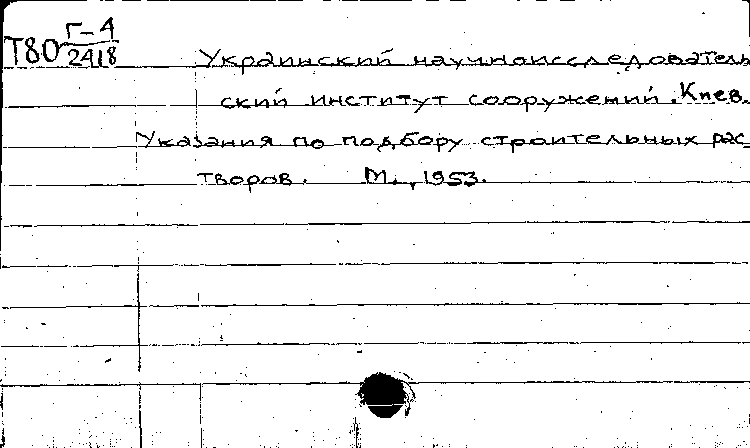 Т80 Г-4
2418
Украинский научноисследователь
ский институт сооружений. Киев.
Указания по подбору строительных рас_
творов. М., 1953.